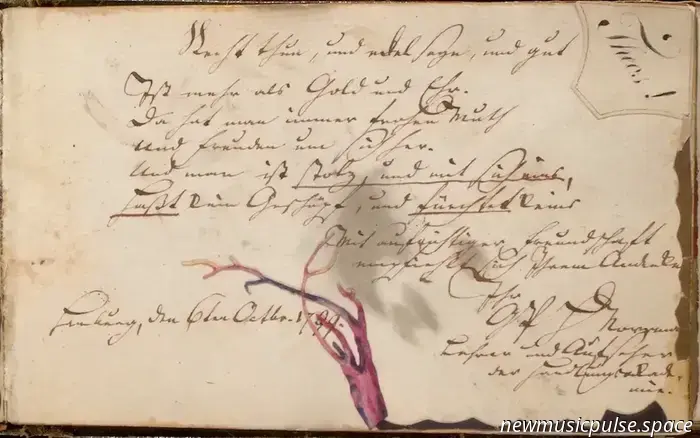 Recht thun, und edel seyn, und gut
Ist mehr als Gold und Ehr.
Da hat man immer frohen Muth
und Freunden um sich her.
Und man ist stolz, und mit sich eins,
Haßt kein Geschöpf, und fürchtet keins
Mit aufrichtiger Freundschaft
empfiehlt sich Ihrem Andenken
Ihr
den 6ten Octbr. 1789.
Lehrer und Aufseher
der Handlungsakade-
mie.
newmusicpulse.space